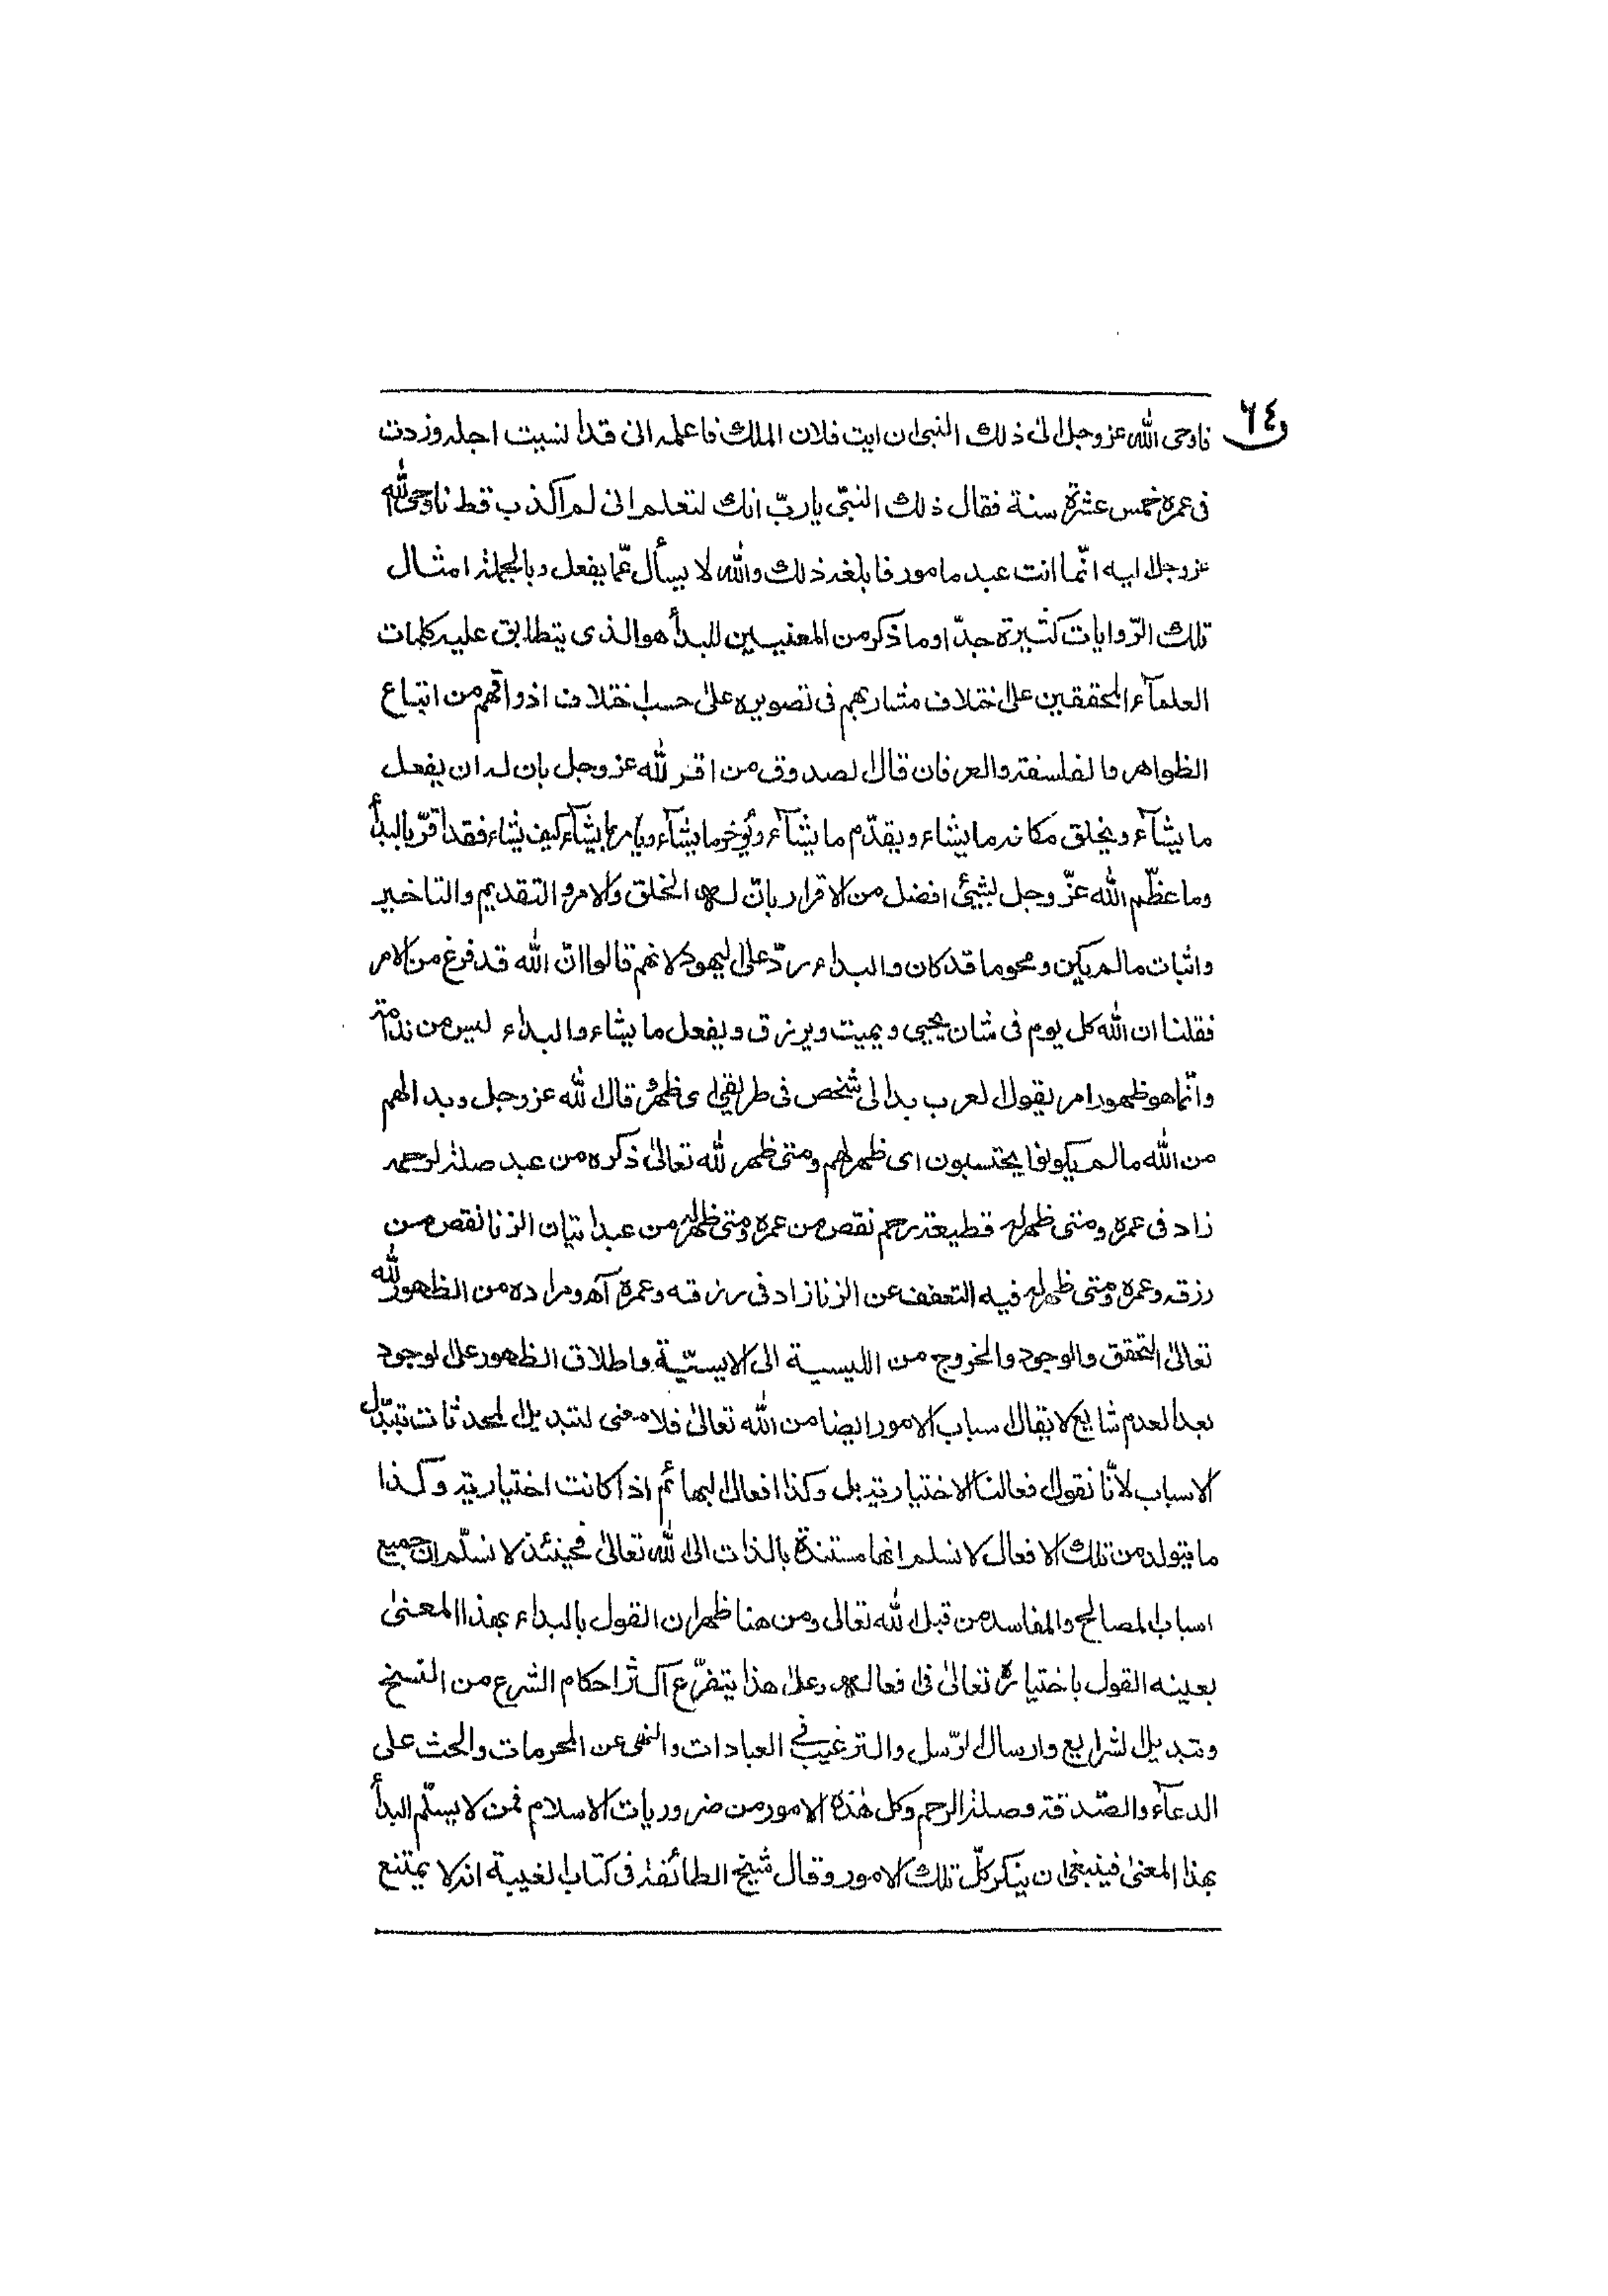 ٦٤
فاوحى الله عز وجل الى ذلك النبى ان ايت فلان الملك فاعلمه انى قد انسيت اجله وزدت
فى عمره خمس عشرة سنة فقال ذلك النبىّ ياربّ انك لتعلم انى لم اكذب قط فاوحى الله
عزوجل اليه انّما انت عبد مامور فابلغه ذلك والله لا يسأل عمّا يفعل وبالجملة امثال
تلك الرّوايات كثيرة جدّا وما ذكر من المعنيين للبدأ هو الذى يتطابق عليه كلمات
العلمآء المحققين على اختلاف مشاربهم فى تصويره على حسب اختلاف اذواقهم من اتباع
الظواهر والفلسفة والعرفان قال الصدوق من اقر لله عز وجل بان له ان يفعل
ما يشآء ويخلق مكانه ما يشاء ويقدّم ما يشآء ويؤخر ما يشآء ويامر بما يشآء كيف يشاء فقد اقرّ بالبدأ
وما عظّم الله عزّ وجل بشيئ افضل من الاقرار بانّ له الخلق والامر والتقديم والتاخير
واثبات ما لم يكن ومحو ما قد كان والبداء ردّ على اليهود لانهم قالوا انّ الله قد فرغ من الامر
فقلنا ان الله كل يوم فى شان يحيى ويميت ويرزق ويفعل ما يشاء والبداء ليس من ندامة
وانّما هو ظهور امر يقول العرب بدا لى شخص فى طريقى اى ظهر قال الله عز وجل وبدا لهم
من الله ما لم يكونوا يحتسبون اى ظهر لهم ومتى ظهر لله تعالى ذكره من عبد صلة لرحمه
زاد فى عمره ومتى ظهر له قطيعة رحم نقص من عمره ومتى ظهر له من عبد اتيان الزنا نقص من
رزقه وعمره ومتى ظهر له فيه التعفف عن الزنا زاد فى رزقه وعمره آه ومراده من الظهور لله
تعالى التحقق والوجود والخروج من الليسية الى الايسيّة واطلاق الظهور على الوجود
بعد العدم شايع لا يقال اسباب الامور ايضا من الله تعالى فلا معنى لتبديل المحدثات بتبدّل
الاسباب لانّا نقول افعالنا الاختيارية بل وكذا افعال البهائم اذا كانت اختيارية وكذا
ما يتولد من تلك الافعال لا نسلم انها مستندة بالذات الى الله تعالى فحينئذ لا نسلّم ان جميع
اسباب المصالح والمفاسد من قبل الله تعالى ومن هنا ظهر ان القول بالبداء بهذا المعنى
بعينه القول باختياره تعالى فى افعاله وعلى هذا يتفرّع اكثر احكام الشرع من النسخ
وتبديل الشرايع وارسال الرّسل والترغيب فى العبادات والنهى عن المحرمات والحث على
الدعآء والصّدقة وصلة الرحم وكل هذه الامور من ضروريات الاسلام فمن لا يسلّم البدأ
بهذا المعنى فينبغى ان ينكر كلّ تلك الامور وقال شيخ الطائفة فى كتاب الغيبة انه لا يمتنع